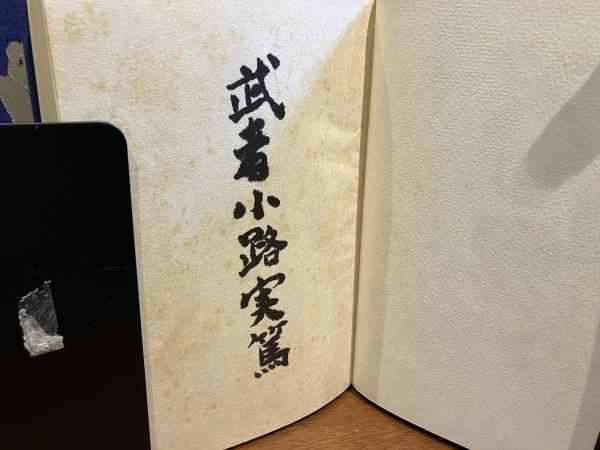 武者小路実篤